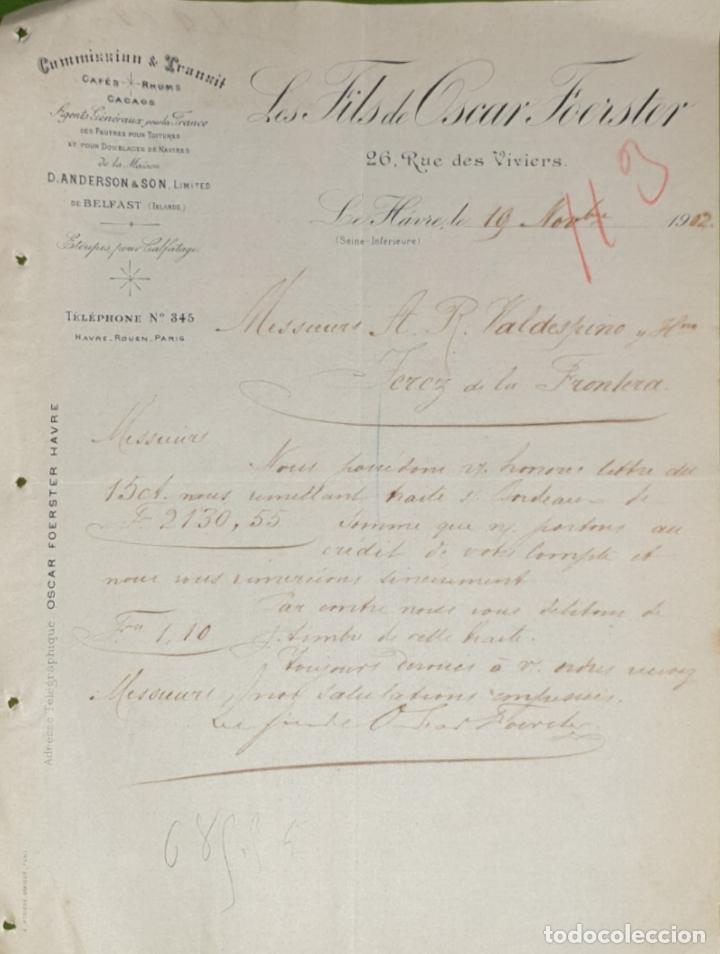 Commission & Transit
CAFÉS RHUMS
CACAOS
Agents Généraux pour la France
DES FEUTRES POUR TOITURES
ET POUR DOUBLAGES DE NAVIRES
de la Maison
D. ANDERSON & SON, LIMITED
DE BELFAST (IRLANDE)
Etoupes pour Calfatage
TÉLÉPHONE Nº 345
HAVRE_ROUEN_PARIS
Les Fils de Oscar Foerster
26, Rue des Viviers.
113
Le Hâvre, le 19 Novbre 1902.
(Seine-Inférieure)
Messieurs A. R. Valdespino y Hno
Jerez de la Frontera.
Messieurs
Nous possédons v/. honorée lettre du
15 ct. nous remettant traite s/ Bordeaux de
F. 2130,55 somme que n/. portons au
crédit de votre compte et
nous vous remercions sincèrement
Par contre nous vous débitons de
Fcs 1,10 p. timbre de cette traite.
Toujours dévoués à v. ordres recevez
Messieurs, nos salutations empressées.
Les fils de Oscar Foerster
Adresse Télégraphique OSCAR FOERSTER HAVRE
todocoleccion.net